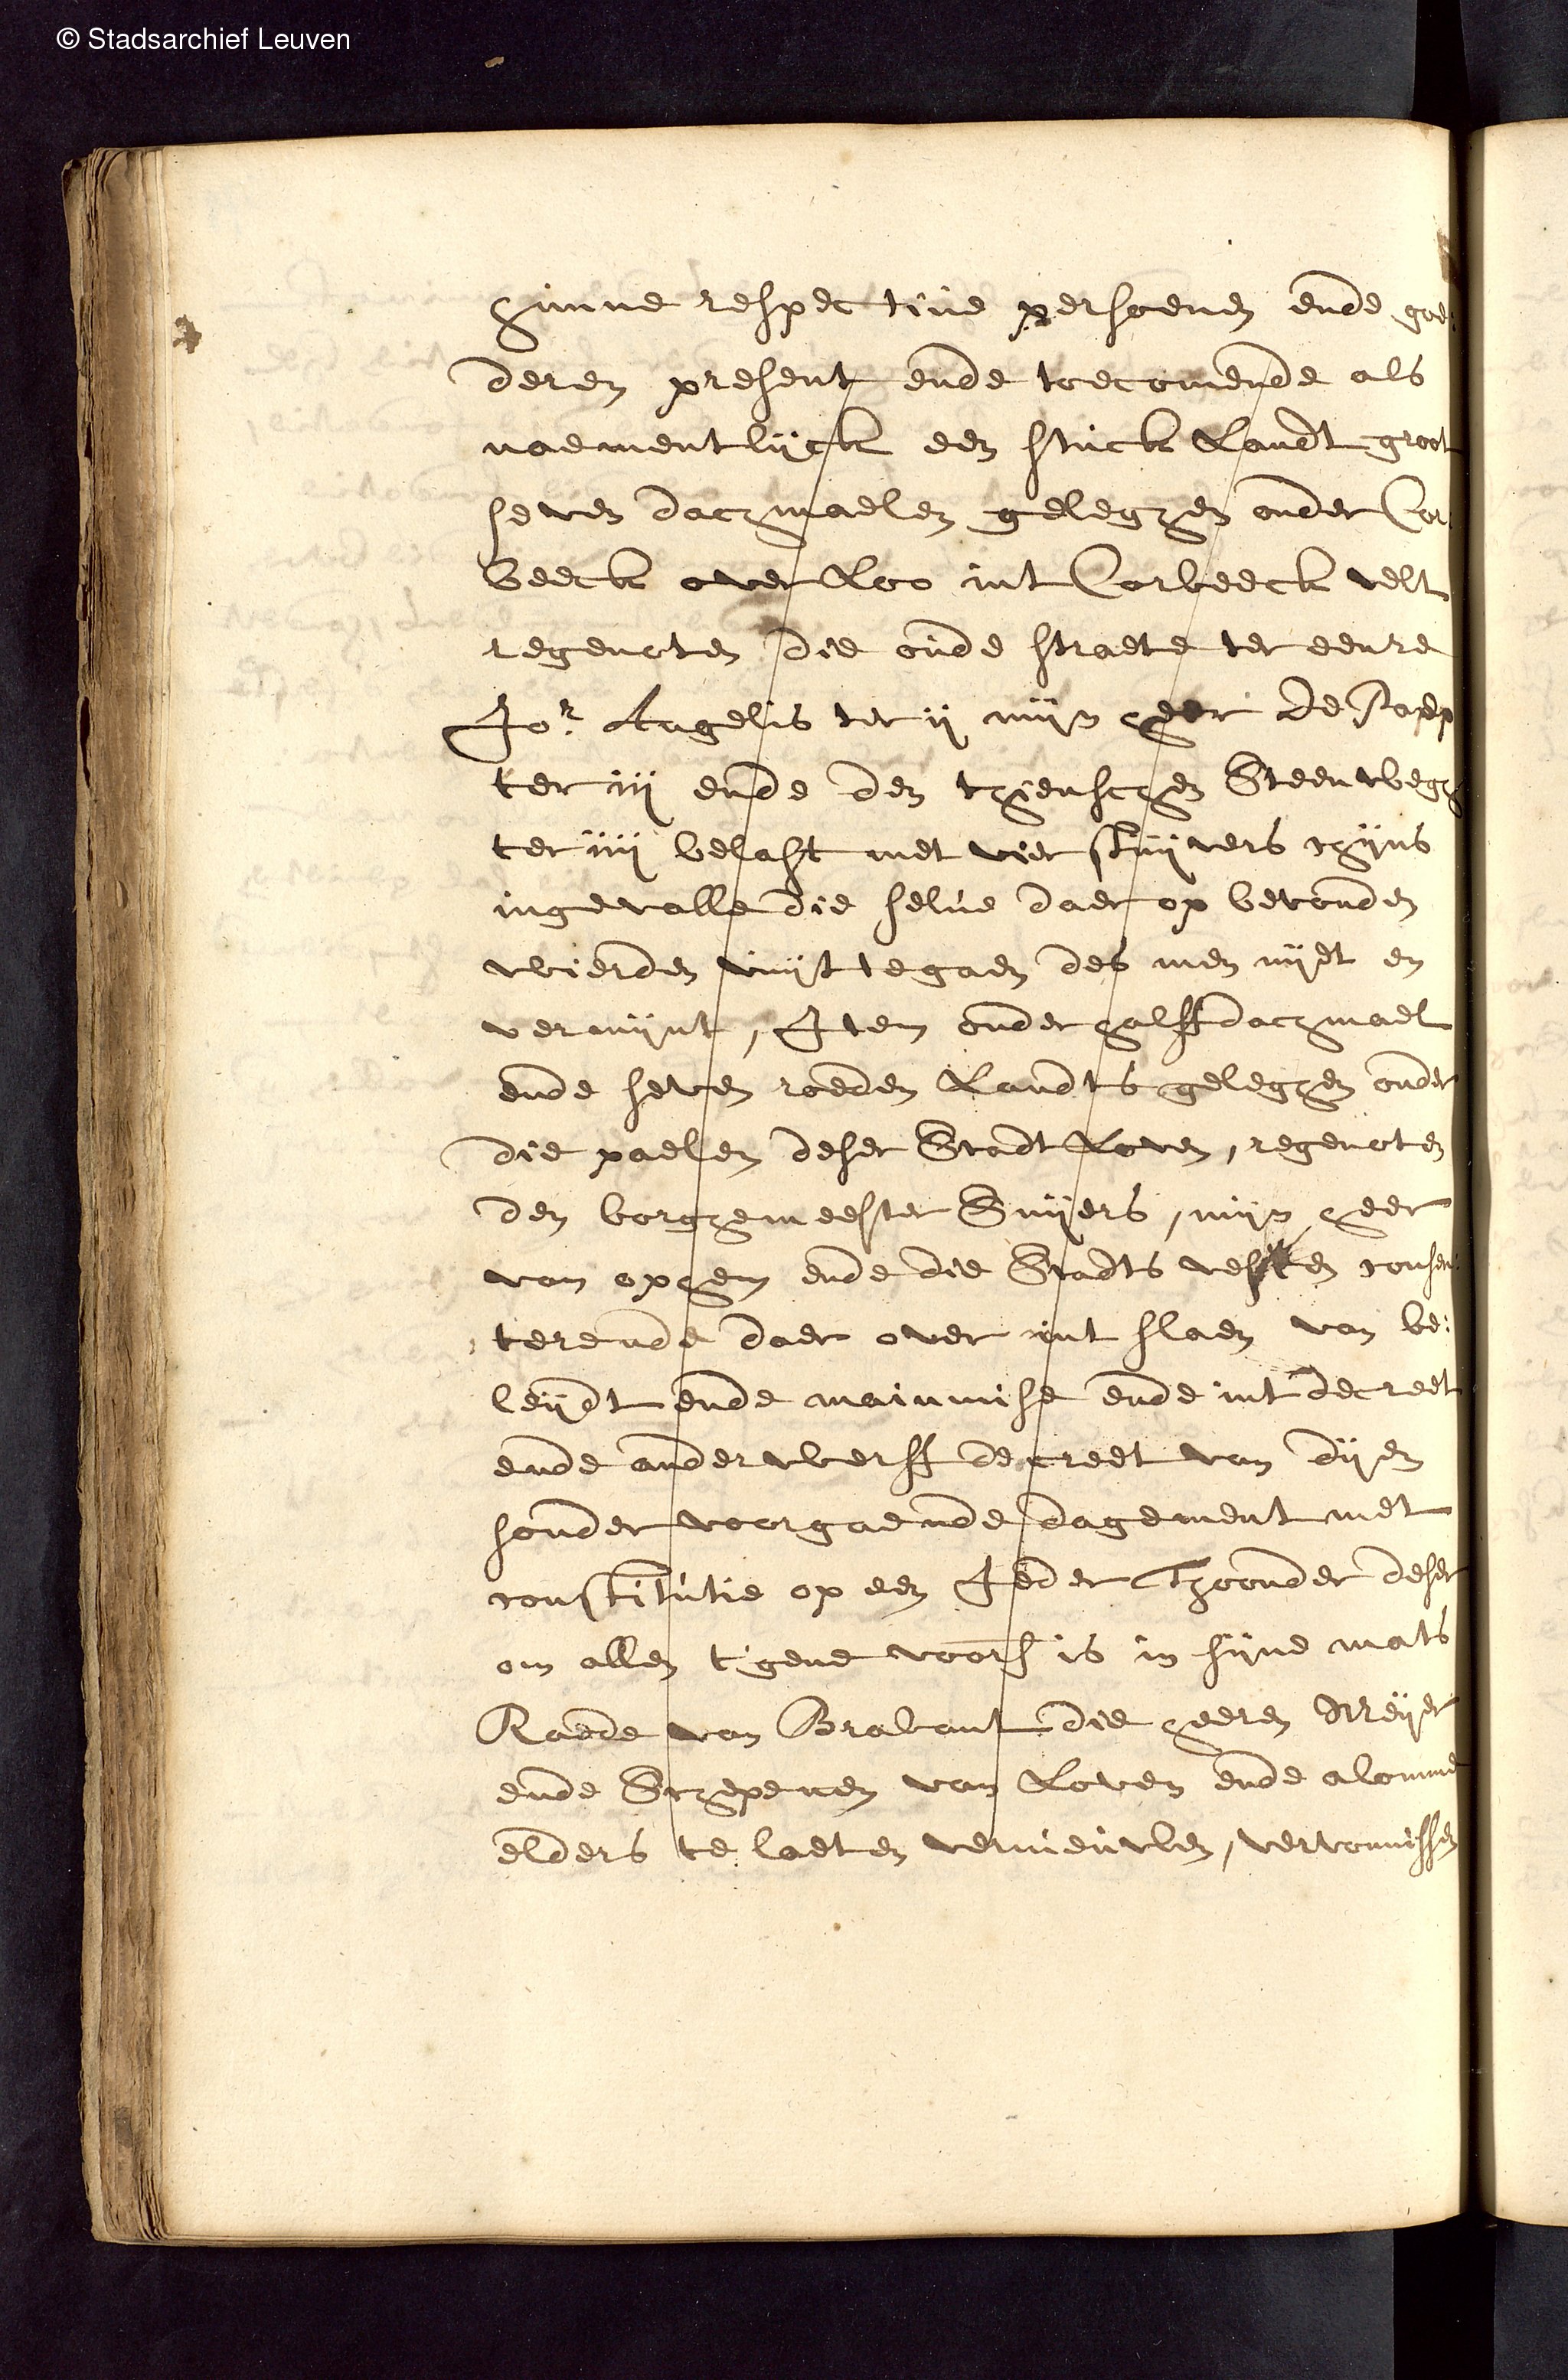 © Stadsarchief Leuven
hunne respective persoenen ende goe:
deren present ende toecomende als
naementlijck een stuck Landt groot
seven dachmaelen geleghen onder Cor:
beeck over Loo int Corbeeck velt
regenoten die oude straete ter eenre
Jor. Angelis ter ij mijn heer de
ter iij ende den thienschen Steenwegh
ter iiij belast met vier stuijvers chijns
ingevalle die selve daer op bevonden
wierden vuijt te gaen des men nijet en
vermijnt, Item onderhalff dachmael
ende seven roeden Landts geleghen onder
die paelen deser Stadt Loven, regenoten
den borghemeester Snijers, mijn heer
van ophem ende die Stadts vesten consen:
terende daer over int slaen van be:
leijdt ende mainmise ende int decreet
ende anderwerff decreet van dijen
sonder voorgaende dagement met
constitutie op een Jeder Thoonder deser
om allen t'gene voors is in sijne mats
Raede van Brabant die heeren Meijer
ende Schepenen van Loven ende alomme
elders te laeten vernieuwen, vervonnissen